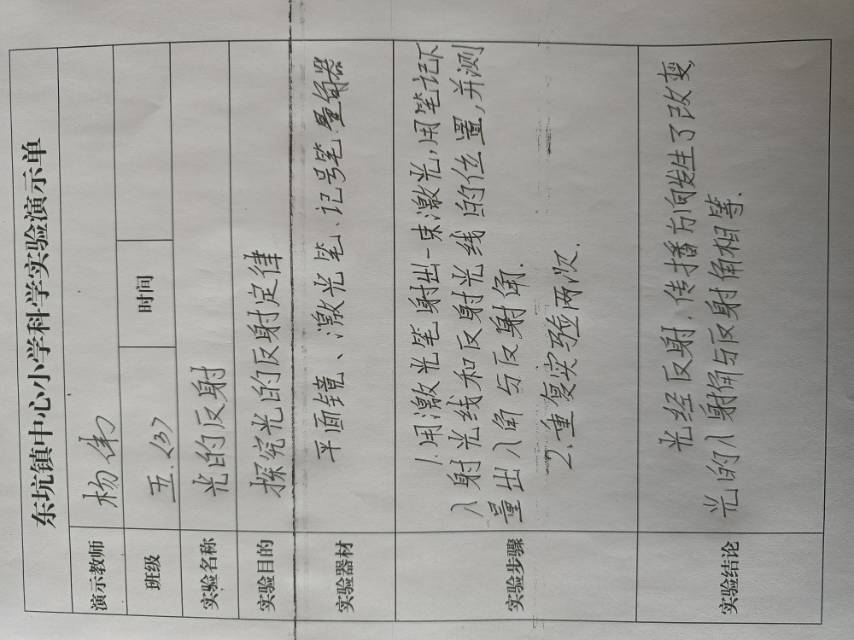 东坑镇中心小学科学实验演示单
演示教师 杨伟
班级 五.(3) 时间
实验名称 光的反射
实验目的 探究光的反射定律
实验器材 平面镜、激光笔、记号笔.量角器
实验步骤
1.用激光笔射出一束激光,用笔记下
入射光线和反射光线的位置,并测
量出入角与反射角.
2.重复实验两次.
实验结论
光经反射,传播方向发生了改变,
光的入射角与反射角相等.